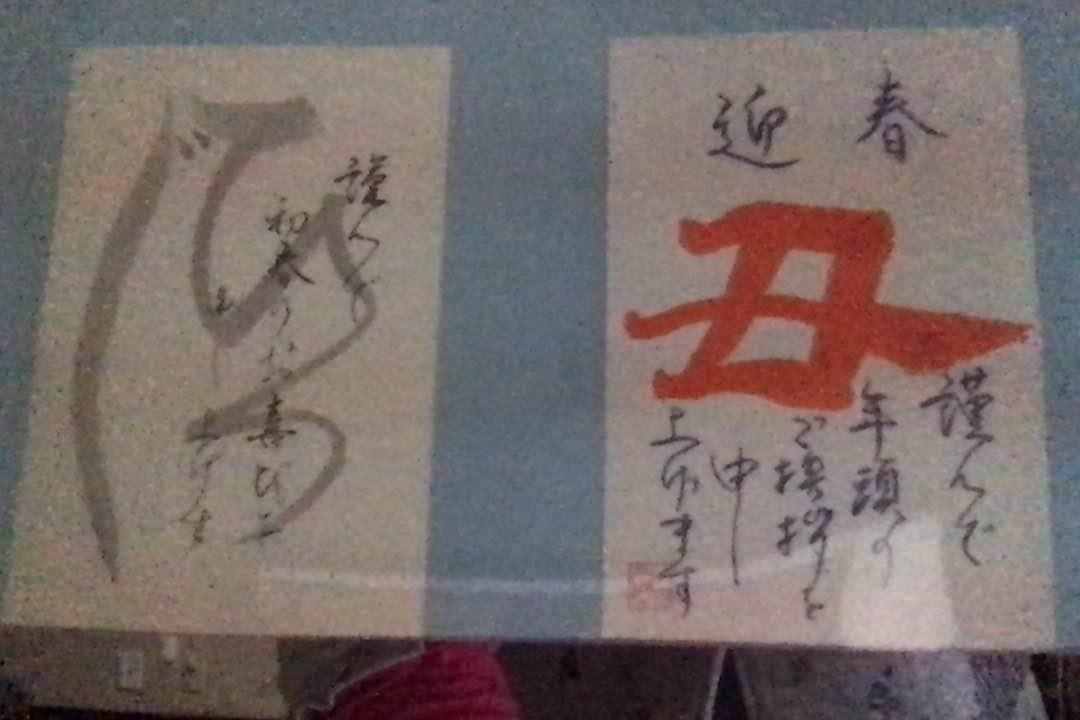 迎春
丑
謹んで
年頭の
ご挨拶を
申し
上げます
謹んで
初春のお喜びを
申し上げます